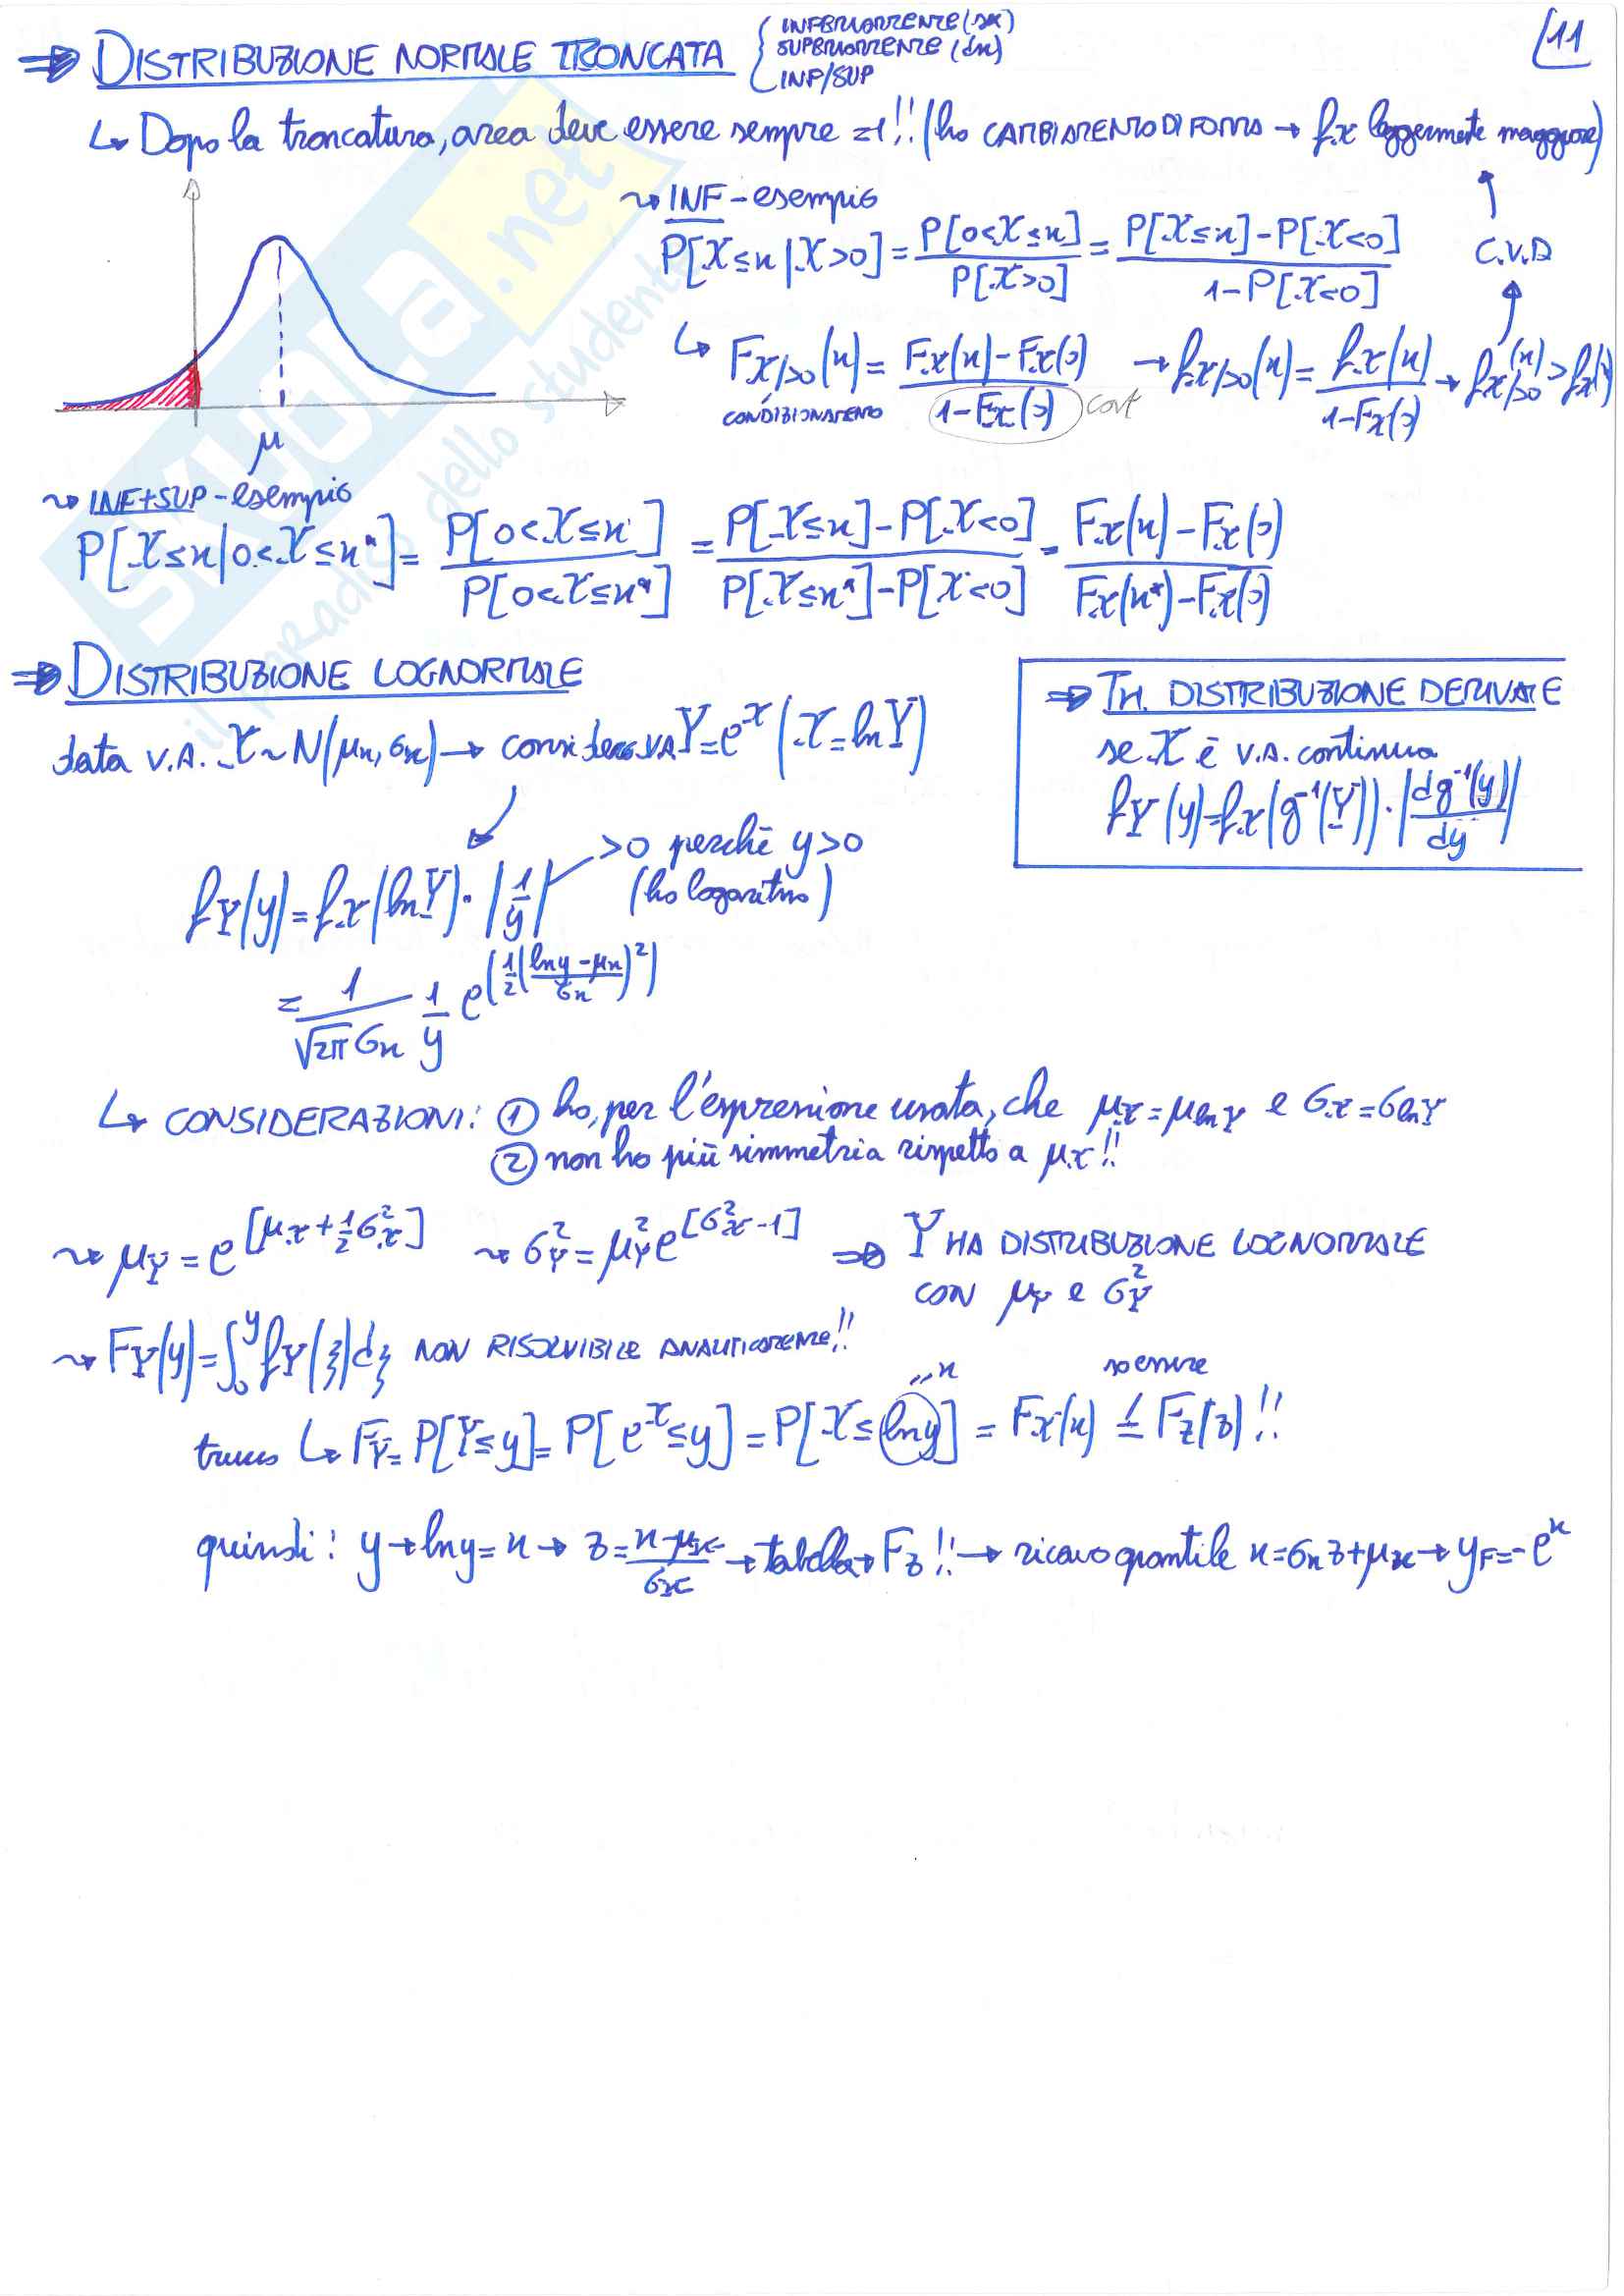 ⇒ DISTRIBUZIONE NORMALE TRONCATA { INFERIORMENTE (sx)
SUPERIORMENTE (dx)
INF/SUP
11
↳ Dopo la troncatura, area deve essere sempre =1!! (ho CAMBIAMENTO DI FORMA → fx leggermente maggiore)
⤳ INF - esempio
P[X≤x|X>0] = P[0<X≤x] / P[X>0] = P[X≤x]-P[X<0] / 1-P[X<0]
C.V.D
↳ F_X/>0(x) = Fx(x)-Fx(0) / 1-Fx(0) cost → f_X/>0(x) = fx(x) / 1-Fx(0) → f_X/>0(x) > fx(x)
CONDIZIONAMENTO
μ
⤳ INF+SUP - esempio
P[X≤x|0<X≤x*] = P[0<X≤x] / P[0<X≤x*] = P[X≤x]-P[X<0] / P[X≤x*]-P[X<0] = Fx(x)-Fx(0) / Fx(x*)-Fx(0)
⇒ DISTRIBUZIONE LOGNORMALE
data v.a. X~N(μx,σx) → considero VA Y=e^X (X=lnY)
⇒ TH. DISTRIBUZIONE DERIVATE
se X è v.a. continua
fY(y)=fx(g⁻¹(Y))·|dg⁻¹(y)/dy|
fY(y)=fx(lnY)·|1/y| >0 perchè y>0
(ho logaritmo)
= 1/√2π σx 1/y e^(1/2(lny-μx/σx)²)
↳ CONSIDERAZIONI: ① ho, per l'espressione usata, che μx=μlnY e σx=σlnY
② non ho più simmetria rispetto a μx!!
⤳ μY = e^[μx+½σ²x] ⤳ σ²Y = μ²Y e^[σ²x-1] ⇒ Y HA DISTRIBUZIONE LOGNORMALE
CON μY e σ²Y
⤳ FY(y)=∫₀^y fY(ξ)dξ NON RISOLVIBILE ANALITICAMENTE!!
trucco ↳ FY= P[Y≤y]= P[e^X≤y] = P[X≤lny] = Fx(x) = Fz(z)!!
quindi: y→lny=x→ z=x-μx/σx →tabella→ Fz!!→ ricavo quantile x=σxz+μx→ yF=e^x
SKUOLA.net
il paradiso dello studente